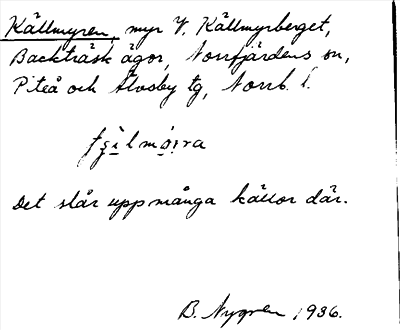 Källmyren, myr V. Källmyrberget,
Backträsk ägor, Norrfjärdens sn,
Piteå och Älvsby tg, Norrb. l.
Det slår upp många källor där.
B. Nygren 1936.